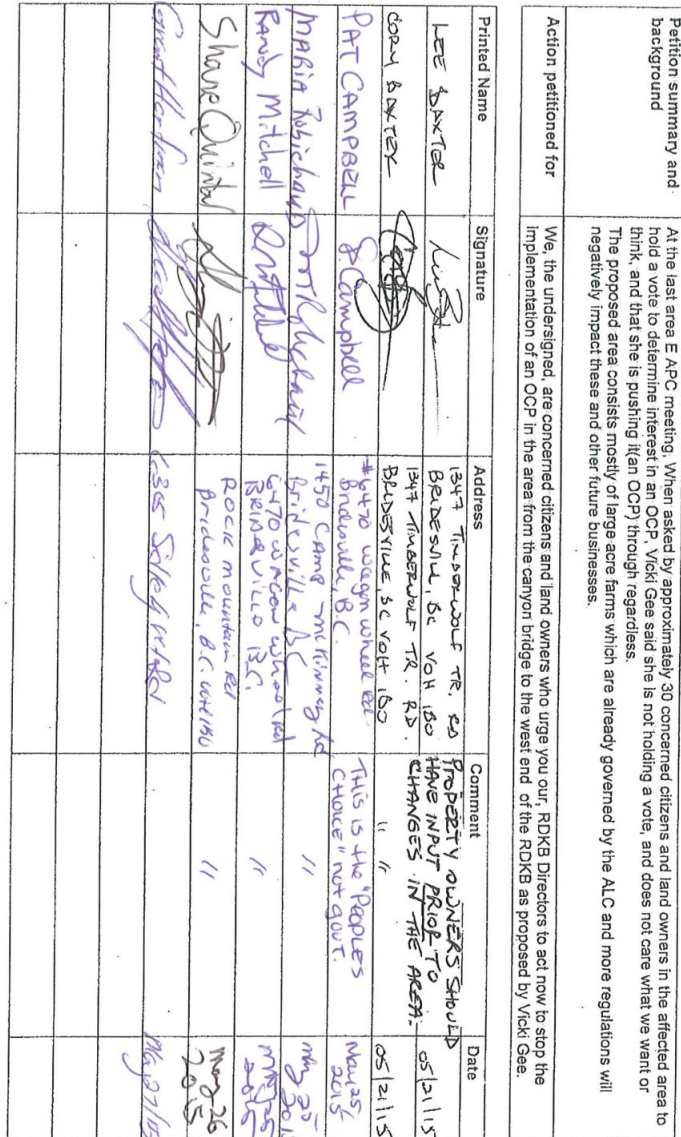 Petition summary and background
At the last area E APC meeting, When asked by approximately 30 concerned citizens and land owners in the affected area to
hold a vote to determine interest in an OCP, Vicki Gee said she is not holding a vote, and does not care what we want or
think, and that she is pushing it(an OCP) through regardless.
The proposed area consists mostly of large acre farms which are already governed by the ALC and more regulations will
negatively impact these and other future businesses.
Action petitioned for
We, the undersigned, are concerned citizens and land owners who urge you our, RDKB Directors to act now to stop the
implementation of an OCP in the area from the canyon bridge to the west end of the RDKB as proposed by Vicki Gee.
Printed Name Signature Address Comment Date
LEE BAXTER 1347 TIMBERWOLF TR. RD PROPERTY OWNERS SHOULD 05/21/15
BRIDESVILL, BC V0H 1B0 HAVE INPUT PRIOR TO
CORY BAXTER 1347 TIMBERWOLF TR. RD. CHANGES IN THE AREA.
BRIDESVILLE, BC V0H 1B0 " " 05/21/15
PAT CAMPBELL P. Campbell #6470 wagon wheel Rd THIS is the "Peoples May 25
Bridesville, B.C. CHOICE" not govt. 2015
MARIA Robichaud 1450 CAMP McKinney Rd " May 25
Bridesville BC
Randy Mitchell 6470 WAGON wheel Rd " May 25
BRIDESVILLE B.C. 2015
Shane Quintal Rock mountain Rd " May 26
Bridesville, B.C. V0H 1B0 2015
Grant 6365 Rd May 27/15